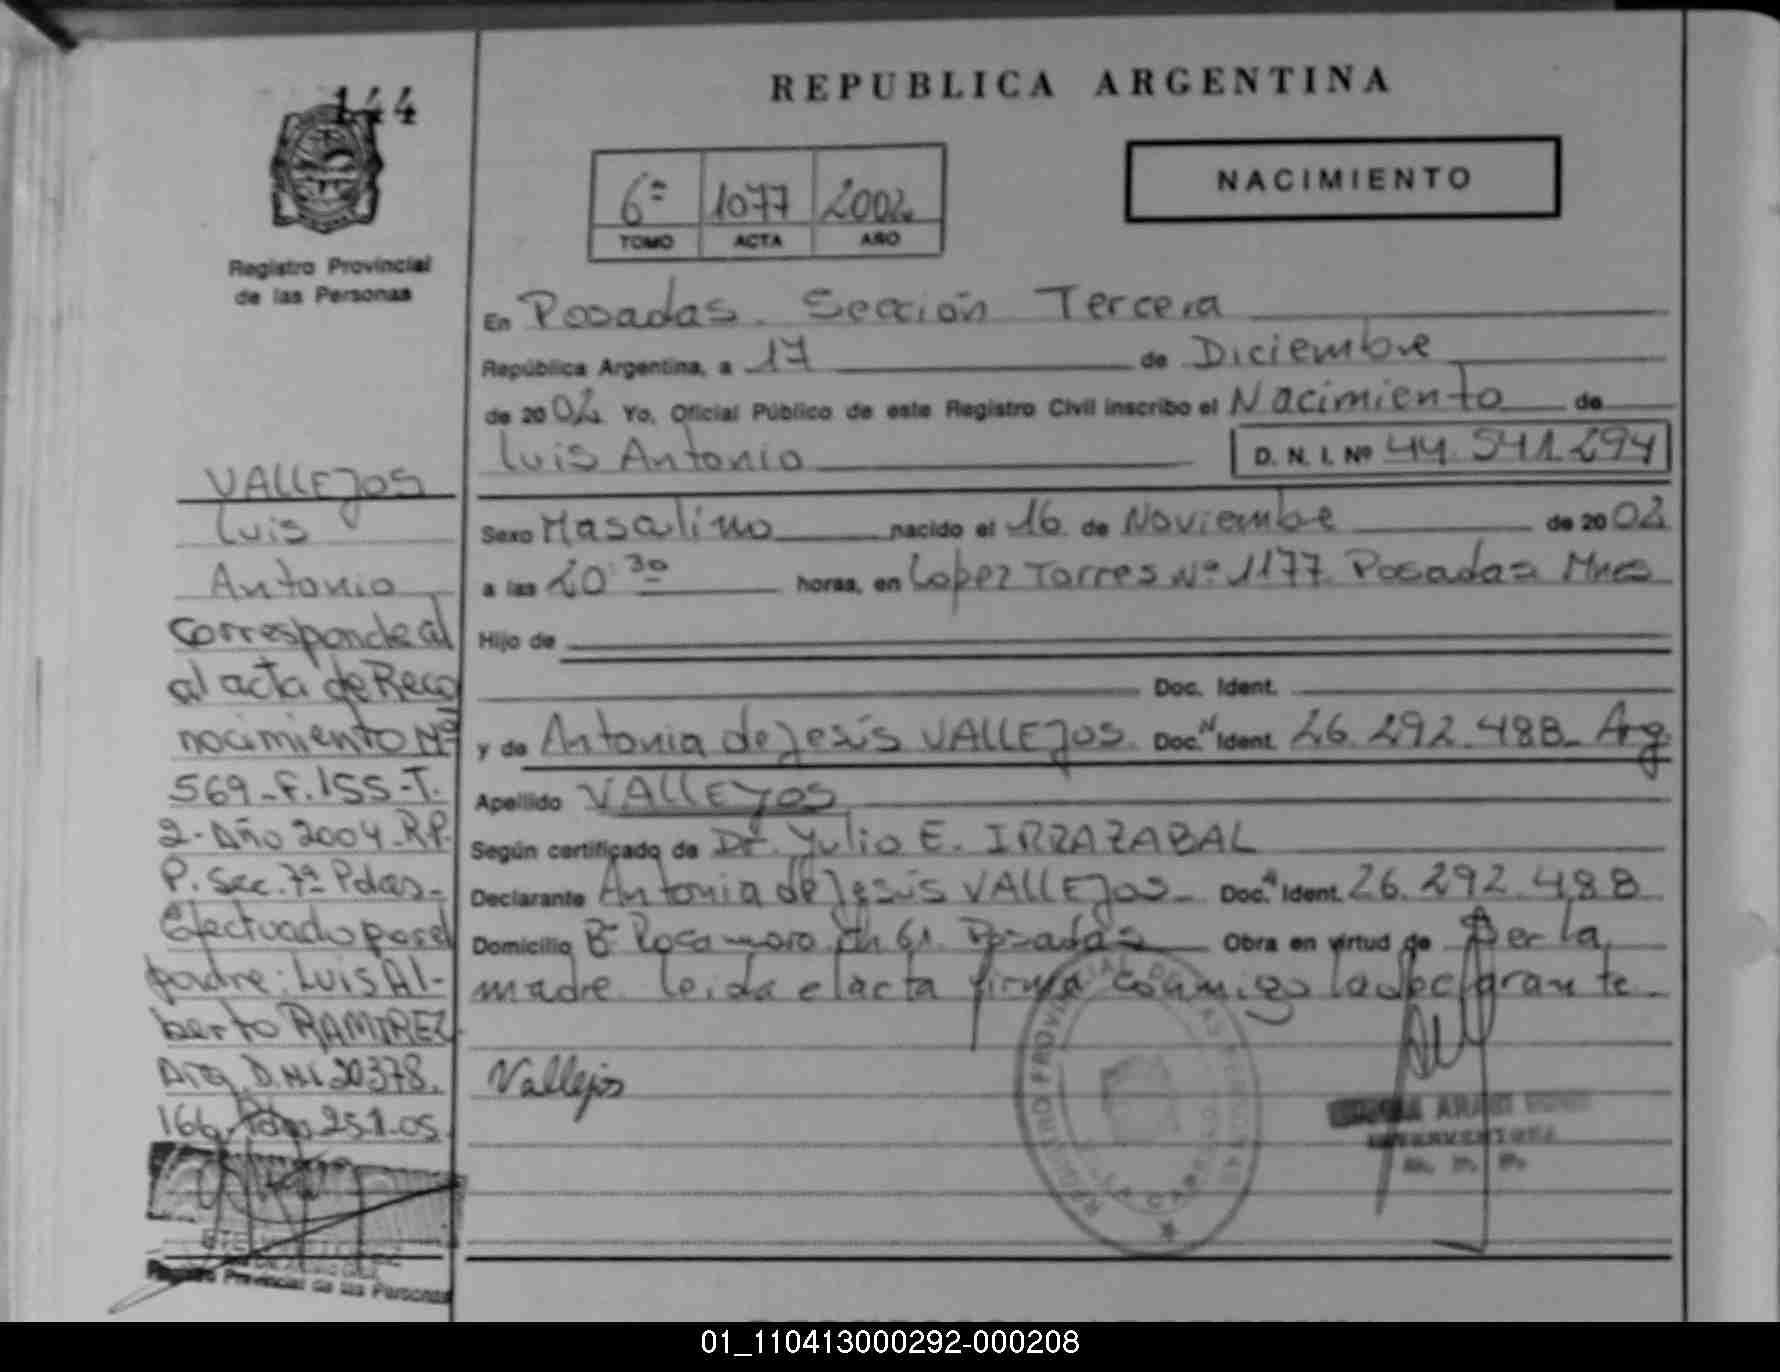 144
Registro Provincial
de las Personas
VALLEJOS
Luis
Antonio
Corresponde al
al acta de Reco
nocimiento Nº
569-F.155-T.
2-Año 2004-RP.
P. Sec. 7ª Pdas-
Efectuado por el
padre: Luis Al-
berto RAMIREZ
Arg. D.N.I 20378.
166 Pdas 25.1.05
Registro Provincial de las Personas
REPUBLICA ARGENTINA
NACIMIENTO
6º 1077 2002
TOMO ACTA AÑO
En Posadas. Sección Tercera
República Argentina, a 17 de Diciembre
de 2002 Yo, Oficial Público de este Registro Civil inscribo el Nacimiento de
Luis Antonio D. N. I. Nº 44.541.294
Sexo Masculino nacido el 16 de Noviembre de 2002
a las 20:30 horas, en Lopez Torres Nº 1177 Posadas Mnes
Hijo de
Doc. Ident.
y de Antonia de Jesús VALLEJOS. Doc. N Ident. 26.292.488- Arg.
Apellido VALLEJOS
Según certificado de Dr. Julio E. IRRAZABAL
Declarante Antonia de Jesús VALLEJOS- Doc. Ident. 26.292.488
Domicilio Bº Rocamora Ch 61. Posadas Obra en virtud de Ser la
madre. leida el acta firma conmigo la declarante-
Vallejos
REGISTRO PROVINCIAL DE LAS PERSONAS
01_110413000292-000208